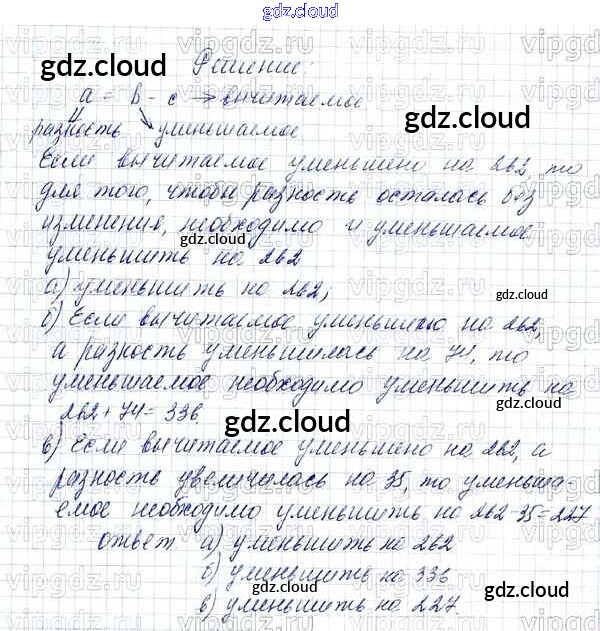 gdz.cloud
Решение:
a = b - c → вычитаемое
разность уменьшаемое
Если вычитаемое уменьшено на 262, то
для того, чтобы разность осталась без
изменения, необходимо и уменьшаемое
уменьшить на 262
а) уменьшить на 262;
б) Если вычитаемое уменьшено на 262,
а разность уменьшилась на 74, то
уменьшаемое необходимо уменьшить на
262+74=336.
в) Если вычитаемое уменьшено на 262, а
разность увеличилась на 35, то уменьша-
емое необходимо уменьшить на 262-35=227
ответ а) уменьшить на 262
б) уменьшить на 336
в) уменьшить на 227.
gdz.cloud
gdz.cloud
gdz.cloud
gdz.cloud
gdz.cloud
gdz.cloud
gdz.cloud
vipgdz.ru